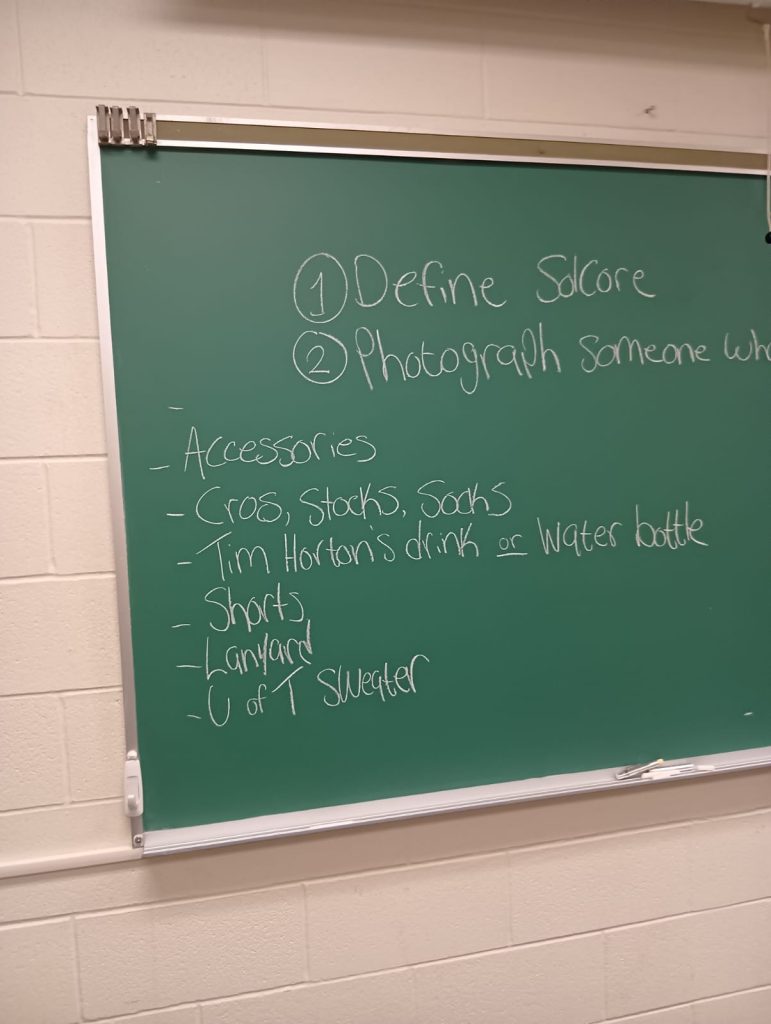 ① Define Salcore
② Photograph someone who
-
- Accessories
- Cros, Stocks, Socks
- Tim Horton's drink or water bottle
- Shorts
- Lanyard
- U of T sweater